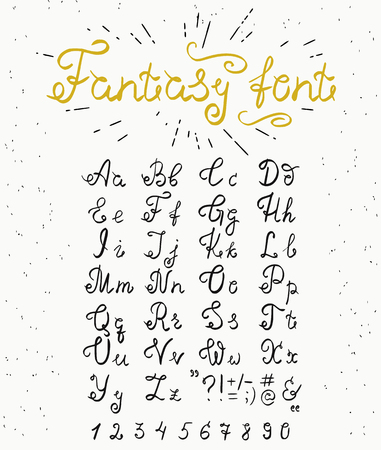 Fantasy font
Aa Bb Cc Dd
Ee Ff Gg Hh
Ii Jj Kk Ll
Mm Nn Oo Pp
Qq Rr Ss Tt
Uu Vv Ww Xx
Yy Zz "?!+-/=;)@#&"
1 2 3 4 5 6 7 8 9 0